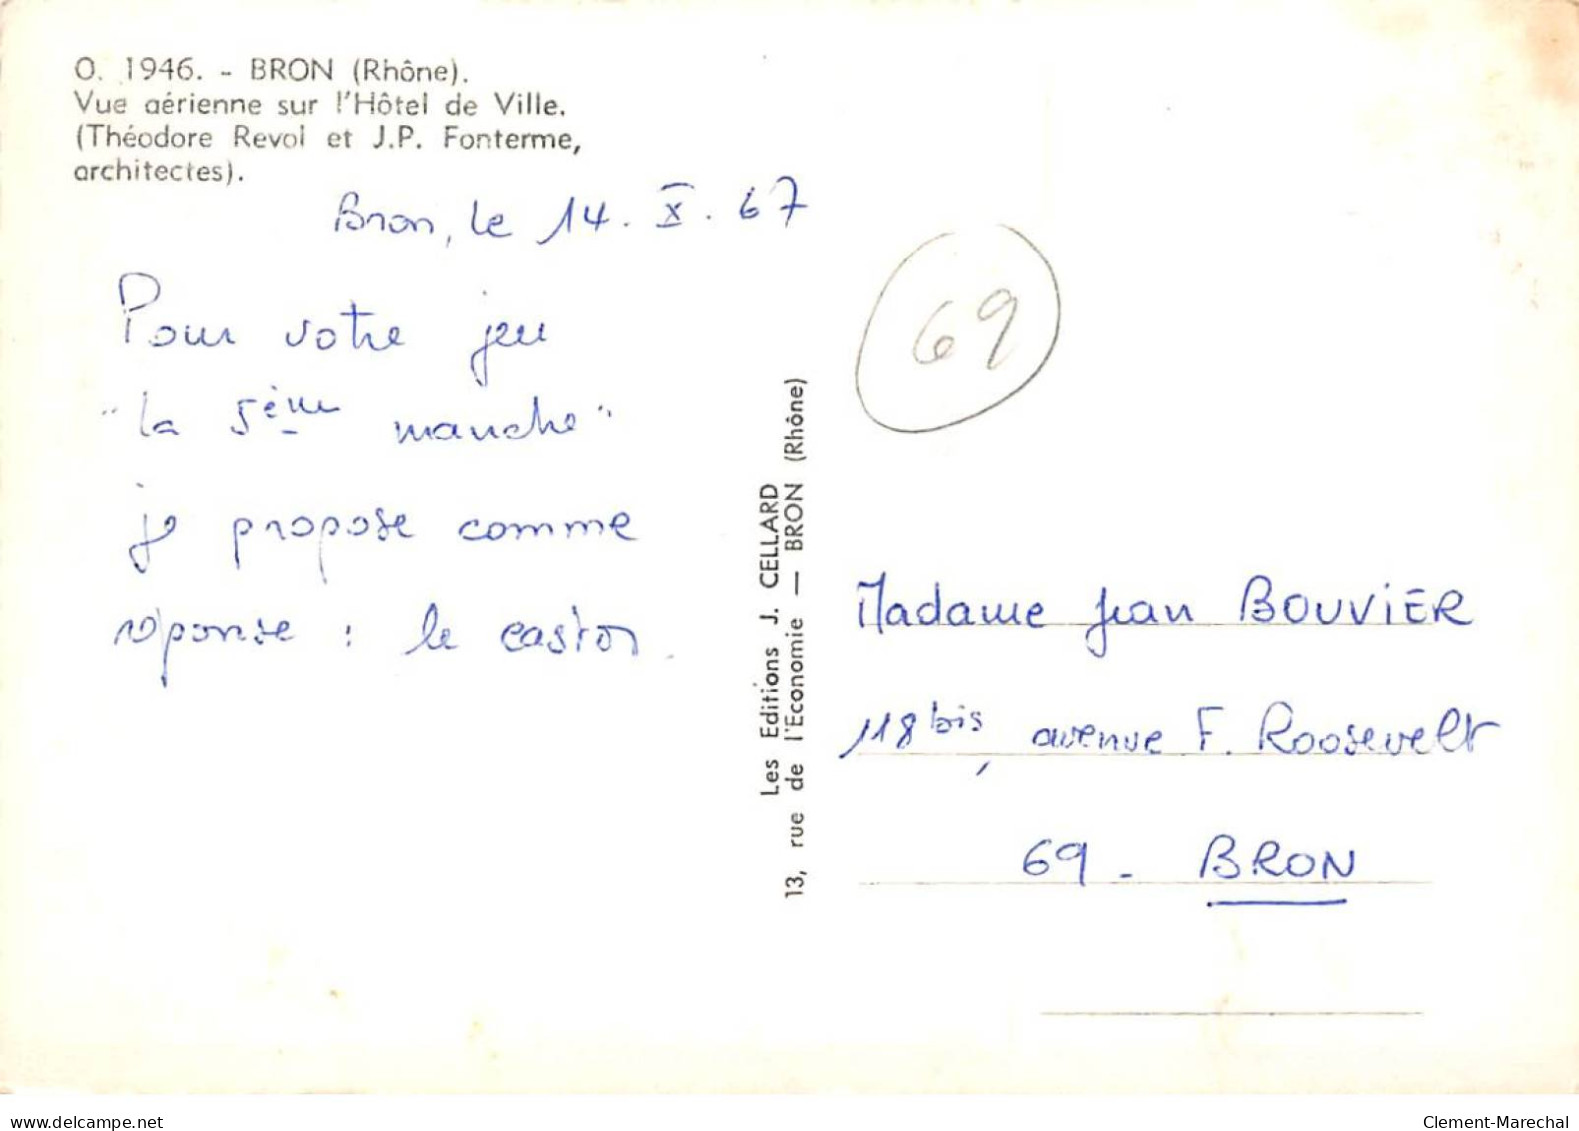 O. 1946. - BRON (Rhône).
Vue aérienne sur l'Hôtel de Ville.
(Théodore Revol et J.P. Fonterme,
architectes).
Bron, le 14. X. 67
Pour votre jeu
"la 5ème manche"
je propose comme
réponse : le castor.
69
Les Editions J. CELLARD
13, rue de l'Economie — BRON (Rhône)
Madame Jean BOUVIER
118 bis, avenue F. Roosevelt
69 - BRON
www.delcampe.net
Clement-Marechal